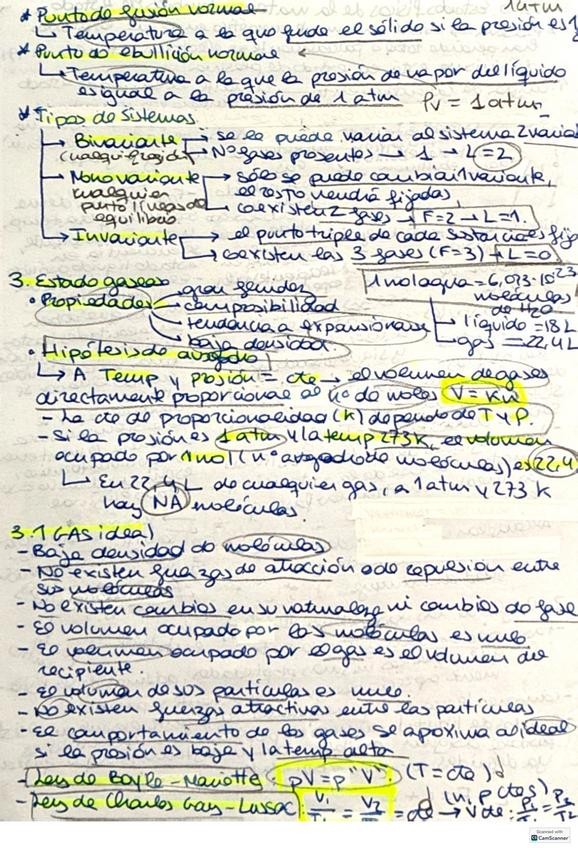 * Punto de fusión normal 1atm
↳ Temperatura a la que funde el sólido si la presión es 1
* Punto de ebullición normal
↳ Temperatura a la que la presión de vapor del líquido
es igual a la presión de 1 atm Pv = 1atm
* Tipos de Sistemas
→ Bivariante → se le puede variar al sistema 2 varia
(cualquier presión) → Nº fases presentes → 1 → L = 2
→ Monovariante → sólo se puede cambiar 1 variante,
cualquier el resto vendrá fijadas,
punto líneas de → coexisten 2 fases → F=2 → L=1.
equilibrio
→ Invariante → el punto triple de cada sustancia es fijo
→ coexisten las 3 fases (F=3) → L=0
3. Estado gaseoso → gran fluidez 1 mol agua = 6,023·10²³
• Propiedades → composibilidad moléculas
→ tendencia a expansionarse de H₂O
→ baja densidad. → líquido = 18 L
→ gas = 22,4 L
• Hipótesis de avogadro
↳ A Temp y presión = cte → el volumen de gas es
directamente proporcional al nº de moles V = Kn
- La cte de proporcionalidad (k) depende de T y P.
- Si la presión es 1 atm y la temp 273 k, el volumen
ocupado por 1 mol (nº avogadro de moléculas) es 22,4
↳ En 22,4 L de cualquier gas, a 1 atm y 273 k
hay NA moléculas.
3.1 GAS ideal
- Baja densidad de moléculas
- No existen fuerzas de atracción o de repulsión entre
sus moléculas
- No existen cambios en su naturaleza ni cambios de fase
- El volumen ocupado por las moléculas es nulo
- El volumen ocupado por el gas es el volumen del
recipiente.
- El volumen de sus partículas es nulo.
- No existen fuerzas atractivas entre las partículas
- El comportamiento de los gases se aproxima al ideal
si la presión es baja y la temp alta
- Ley de Boyle-Mariotte: pV = p"V" (T = cte)
- Ley de Charles Gay-Lussac: V₁/T₁ = V₂/T₂ = cte (n, p ctes) → V cte: P₁/T₁ = P₂/T₂
Scanned with
CamScanner